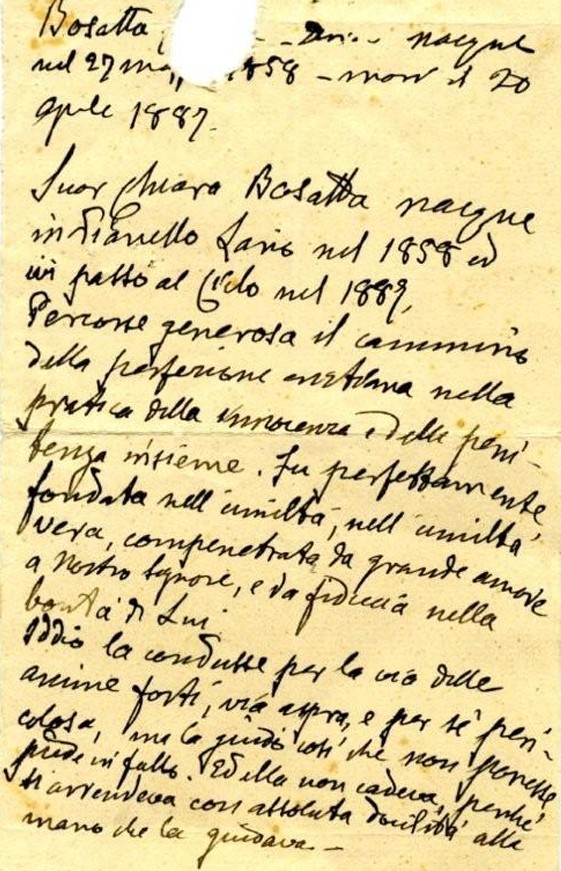 Bosatta nacque
nel 27 1858 - morì il 20
aprile 1887.
Suor Chiara Bosatta nacque
in Pianello Lario nel 1858 ed
ivi passò al Cielo nel 1887.
Percorse generosa il cammino
della perfezione cristiana nella
pratica della innocenza e della peni-
tenza insieme. Fu perfettamente
fondata nell'umiltà, nell'umiltà
vera, compenetrata da grande amore
a Nostro Signore, e da fiducia nella
bontà di Lui.
Iddio la condusse per la via delle
anime forti, via aspra, e per sé peri-
colosa, ma la guidò così che non ponesse
piede in fallo. Ed ella non cadeva, perché
si arrendeva con assoluta docilità alla
mano che la guidava. -